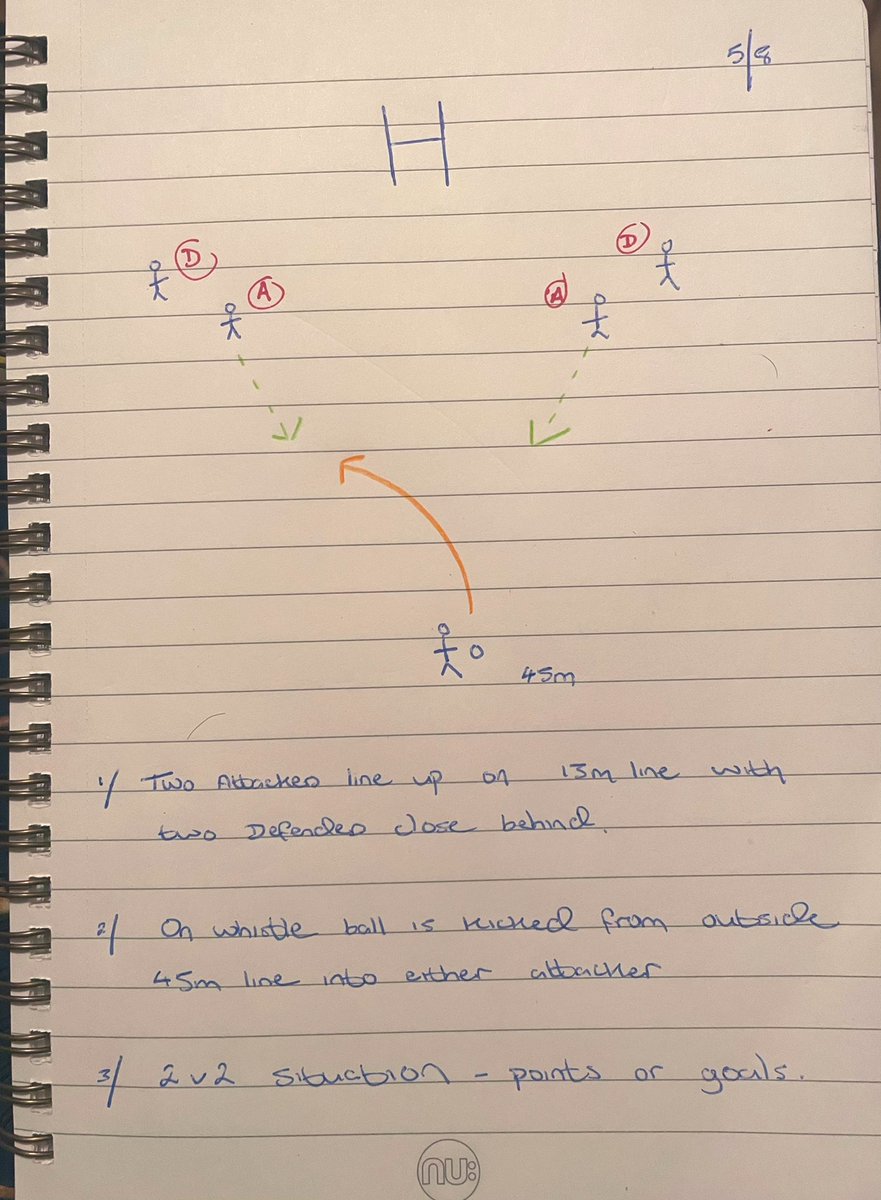 5/8
D
D
A
A
45m
1/ Two Attackers line up on 13m line with
two Defenders close behind.
2/ On whistle ball is kicked from outside
45m line into either attacker
3/ 2v2 situation - points or goals.
nu: